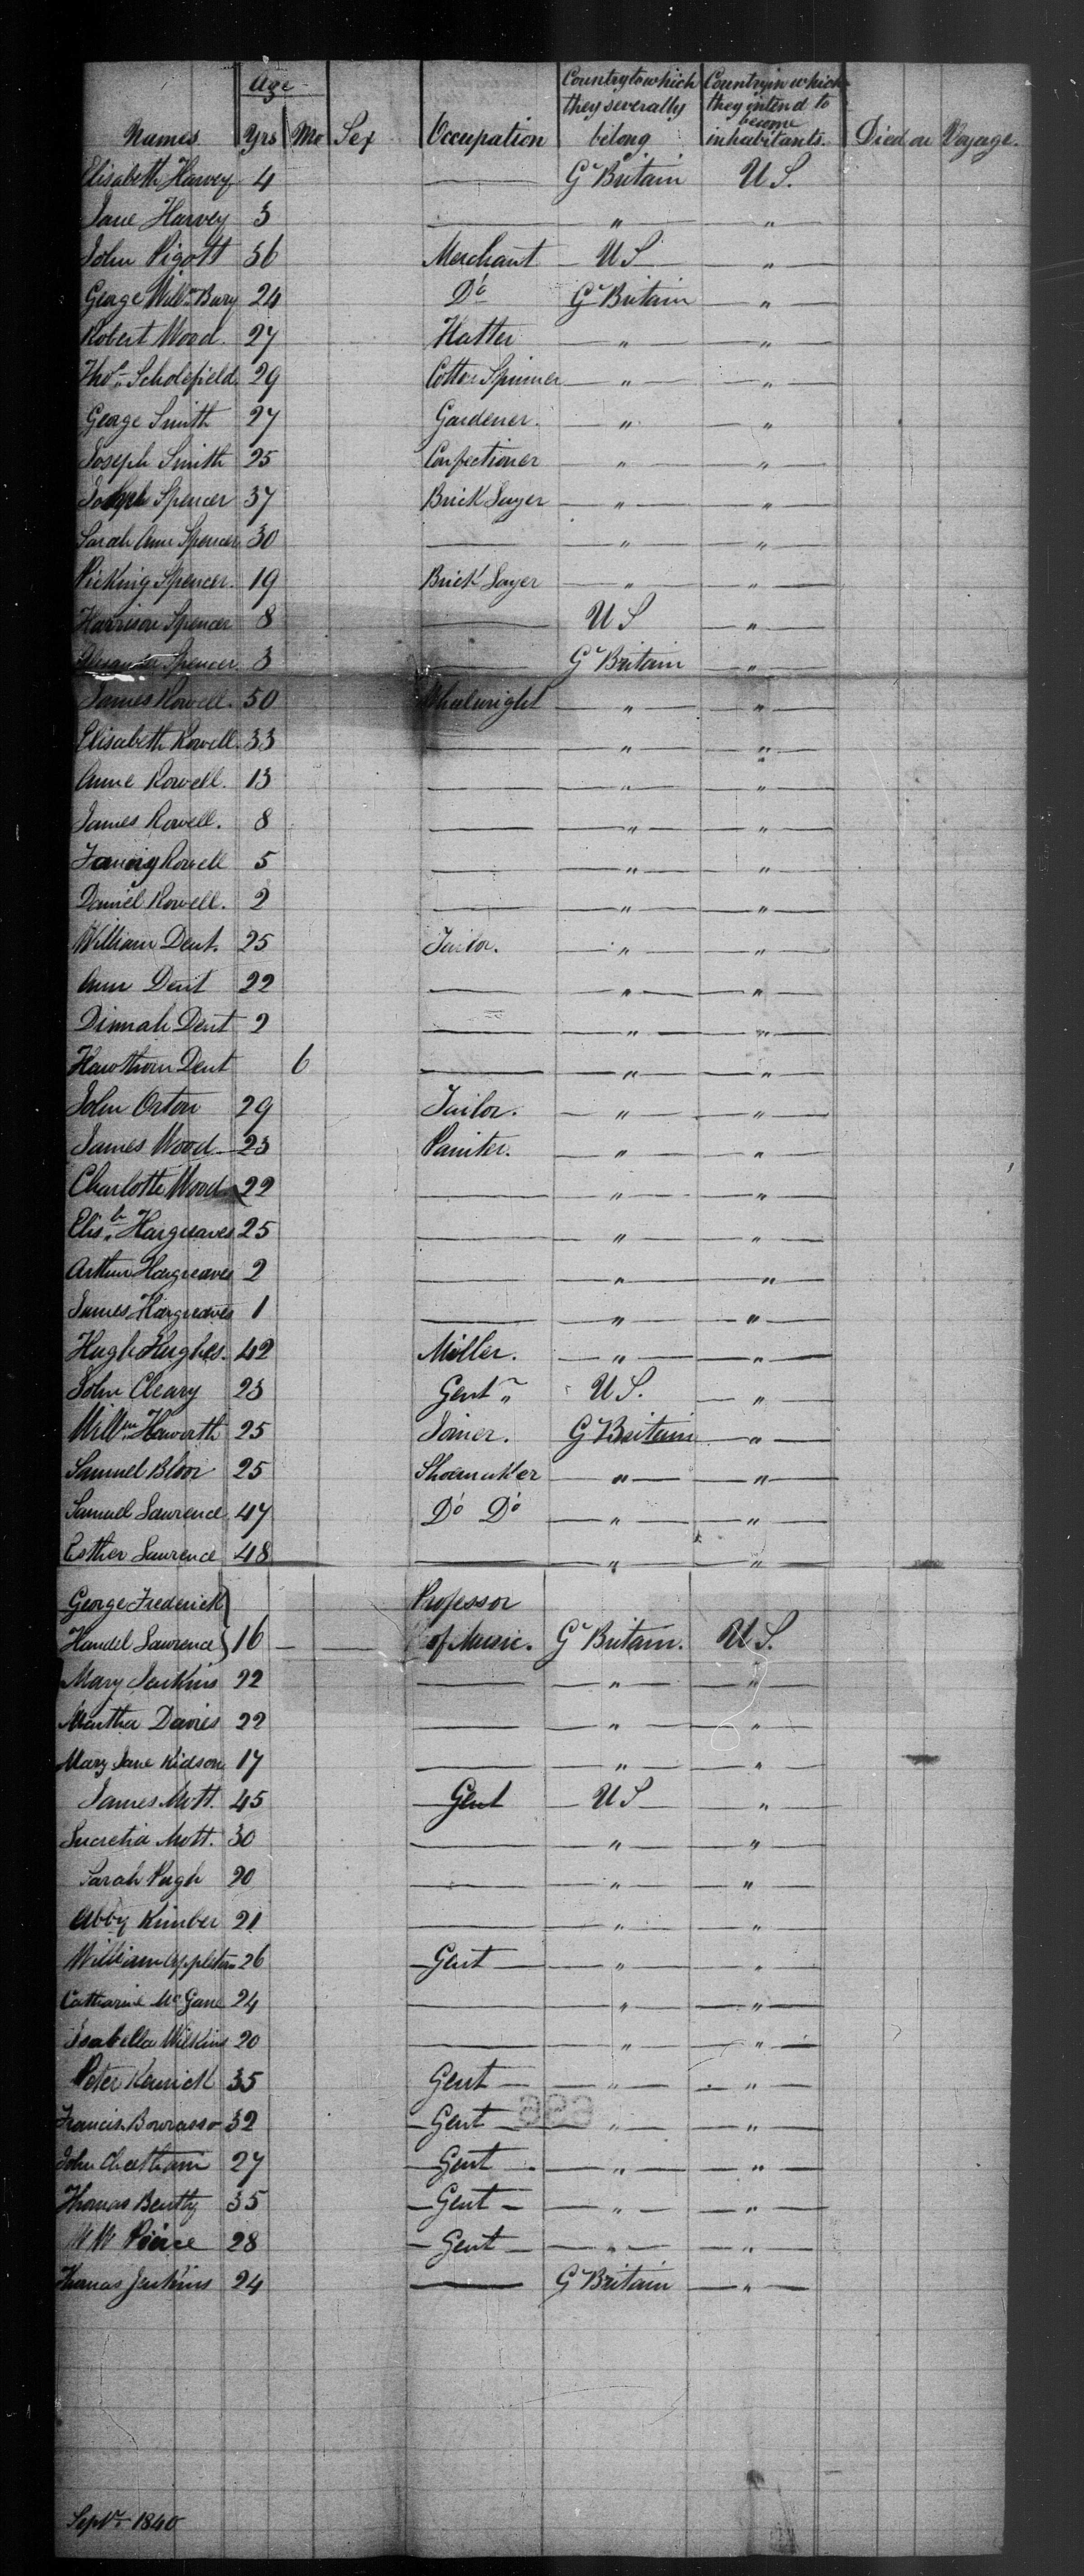 Age
Names Yrs Mo Sex Occupation Country to which they severally belong Country in which they intend to become inhabitants. Died on Voyage.
Elisabeth Harvey 4 — Gt Britain U S.
Jane Harvey 3 — " "
John Pigott 56 Merchant U S "
George Willm Bury 24 Do Gt Britain "
Robert Wood 27 Hatter " "
Thos Scholefield 29 Cotton Spinner " "
George Smith 27 Gardener. " "
Joseph Smith 25 Confectioner " "
Joseph Spencer 37 Brick Layer " "
Sarah Ann Spencer 30 — " "
Picking Spencer. 19 Brick Layer " "
Harrison Spencer 8 — U S "
Spencer 3 — Gt Britain "
James Rowell. 50 Whelwright " "
Elisabeth Rowell. 33 — " "
Anne Rowell. 13 — " "
James Rowell. 8 — " "
Rowell 5 — " "
Daniel Rowell. 2 — " "
William Dent. 25 Tailor. " "
Ann Dent 22 — " "
Dinnah Dent 2 — " "
Hawthorn Dent 6 — " "
John Orton 29 Tailor. " "
James Wood 23 Paniter. " "
Charlotte Wood 22 — " "
Elisbh Hargreaves 25 — " "
Arthur Hargreaves 2 — " "
James Hargreaves 1 — " "
Hugh Hughes. 42 Miller. " "
John Cleary 23 Gent " U S. "
Willm Haworth 25 Joiner. Gt Britain "
Samuel Bloor 25 Shoemaker " "
Samuel Lawrence 47 Do Do " "
Esther Lawrence 48 — " "
George Frederick } Professor
Handel Lawrence } 16 — — of Music. Gt Britain. U S.
Mary Jenkins 22 — " "
Martha Davies 22 — " "
Mary Jane Kidson 17 — " "
James Mott. 45 Gent U S "
Lucretia Mott. 30 — " "
Sarah Pugh 20 — " "
Abby Kimber 21 — " "
William Appleton 26 Gent " "
Catharine Mc Gane 24 — " "
Isabella Wilkins 20 — " "
Peter Kenrick 35 Gent " "
Francis Bowrasso 32 Gent " "
John Cheetham 27 Gent " "
Thomas Bentty 35 Gent " "
W W Peirce 28 Gent " "
Thomas Jenkins 24 — G Britain "
Septr 1840